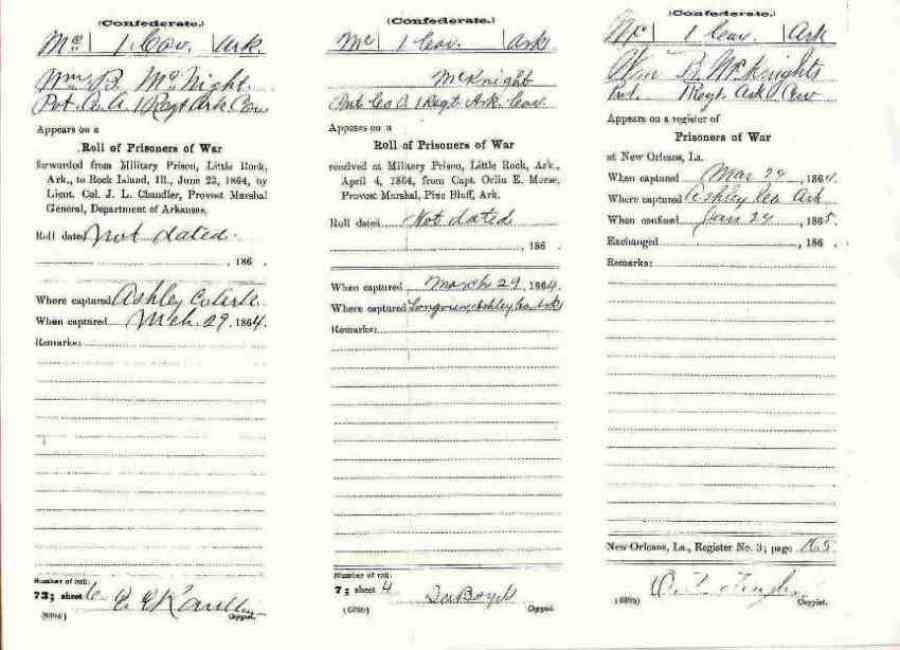 (Confederate.)
Mc | 1 Cav. | Ark
Wm B. McNight
Pvt. Co. A, 1 Regt Ark Cav
Appears on a
Roll of Prisoners of War
forwarded from Military Prison, Little Rock,
Ark., to Rock Island, Ill., June 22, 1864, by
Lieut. Col. J. L. Chandler, Provost Marshal
General, Department of Arkansas.
Roll dated Not dated.
, 186 .
Where captured Ashley Co Ark
When captured Mch. 29, 1864.
Remarks:
Number of roll:
73; sheet 6
Copyist.
(Confederate.)
Mc | 1 Cav. | Ark
McKnight
Pvt Co A 1 Regt Ark. Cav.
Appears on a
Roll of Prisoners of War
received at Military Prison, Little Rock, Ark.,
April 4, 1864, from Capt. Orlin E. Morse,
Provost Marshal, Pine Bluff, Ark.
Roll dated Not dated
, 186 .
When captured March 29, 1864.
Where captured Longview, Ashley Co. Ark
Remarks:
Number of roll:
7; sheet 4
Copyist.
(Confederate.)
Mc | 1 Cav. | Ark
Wm B. McKnights
Pvt. 1 Regt. Ark Cav
Appears on a register of
Prisoners of War
at New Orleans, La.
When captured Mar 29, 1864.
Where captured Ashley Co Ark
When confined Jan 24, 1865.
Exchanged , 186 .
Remarks:
New Orleans, La., Register No. 3; page 165
Copyist.